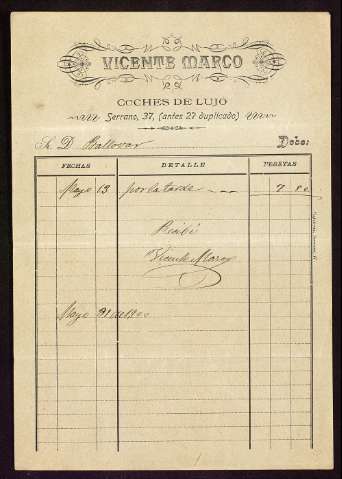 VICENTE MARCO
COCHES DE LUJO
Serrano, 37, (antes 27 duplicado)
Sr. D. Ballovar Debe:
FECHAS DETALLE PESETAS
Mayo 13 por la tarde 7
Recibí
Vicente Marco
Mayo 31 de 1900